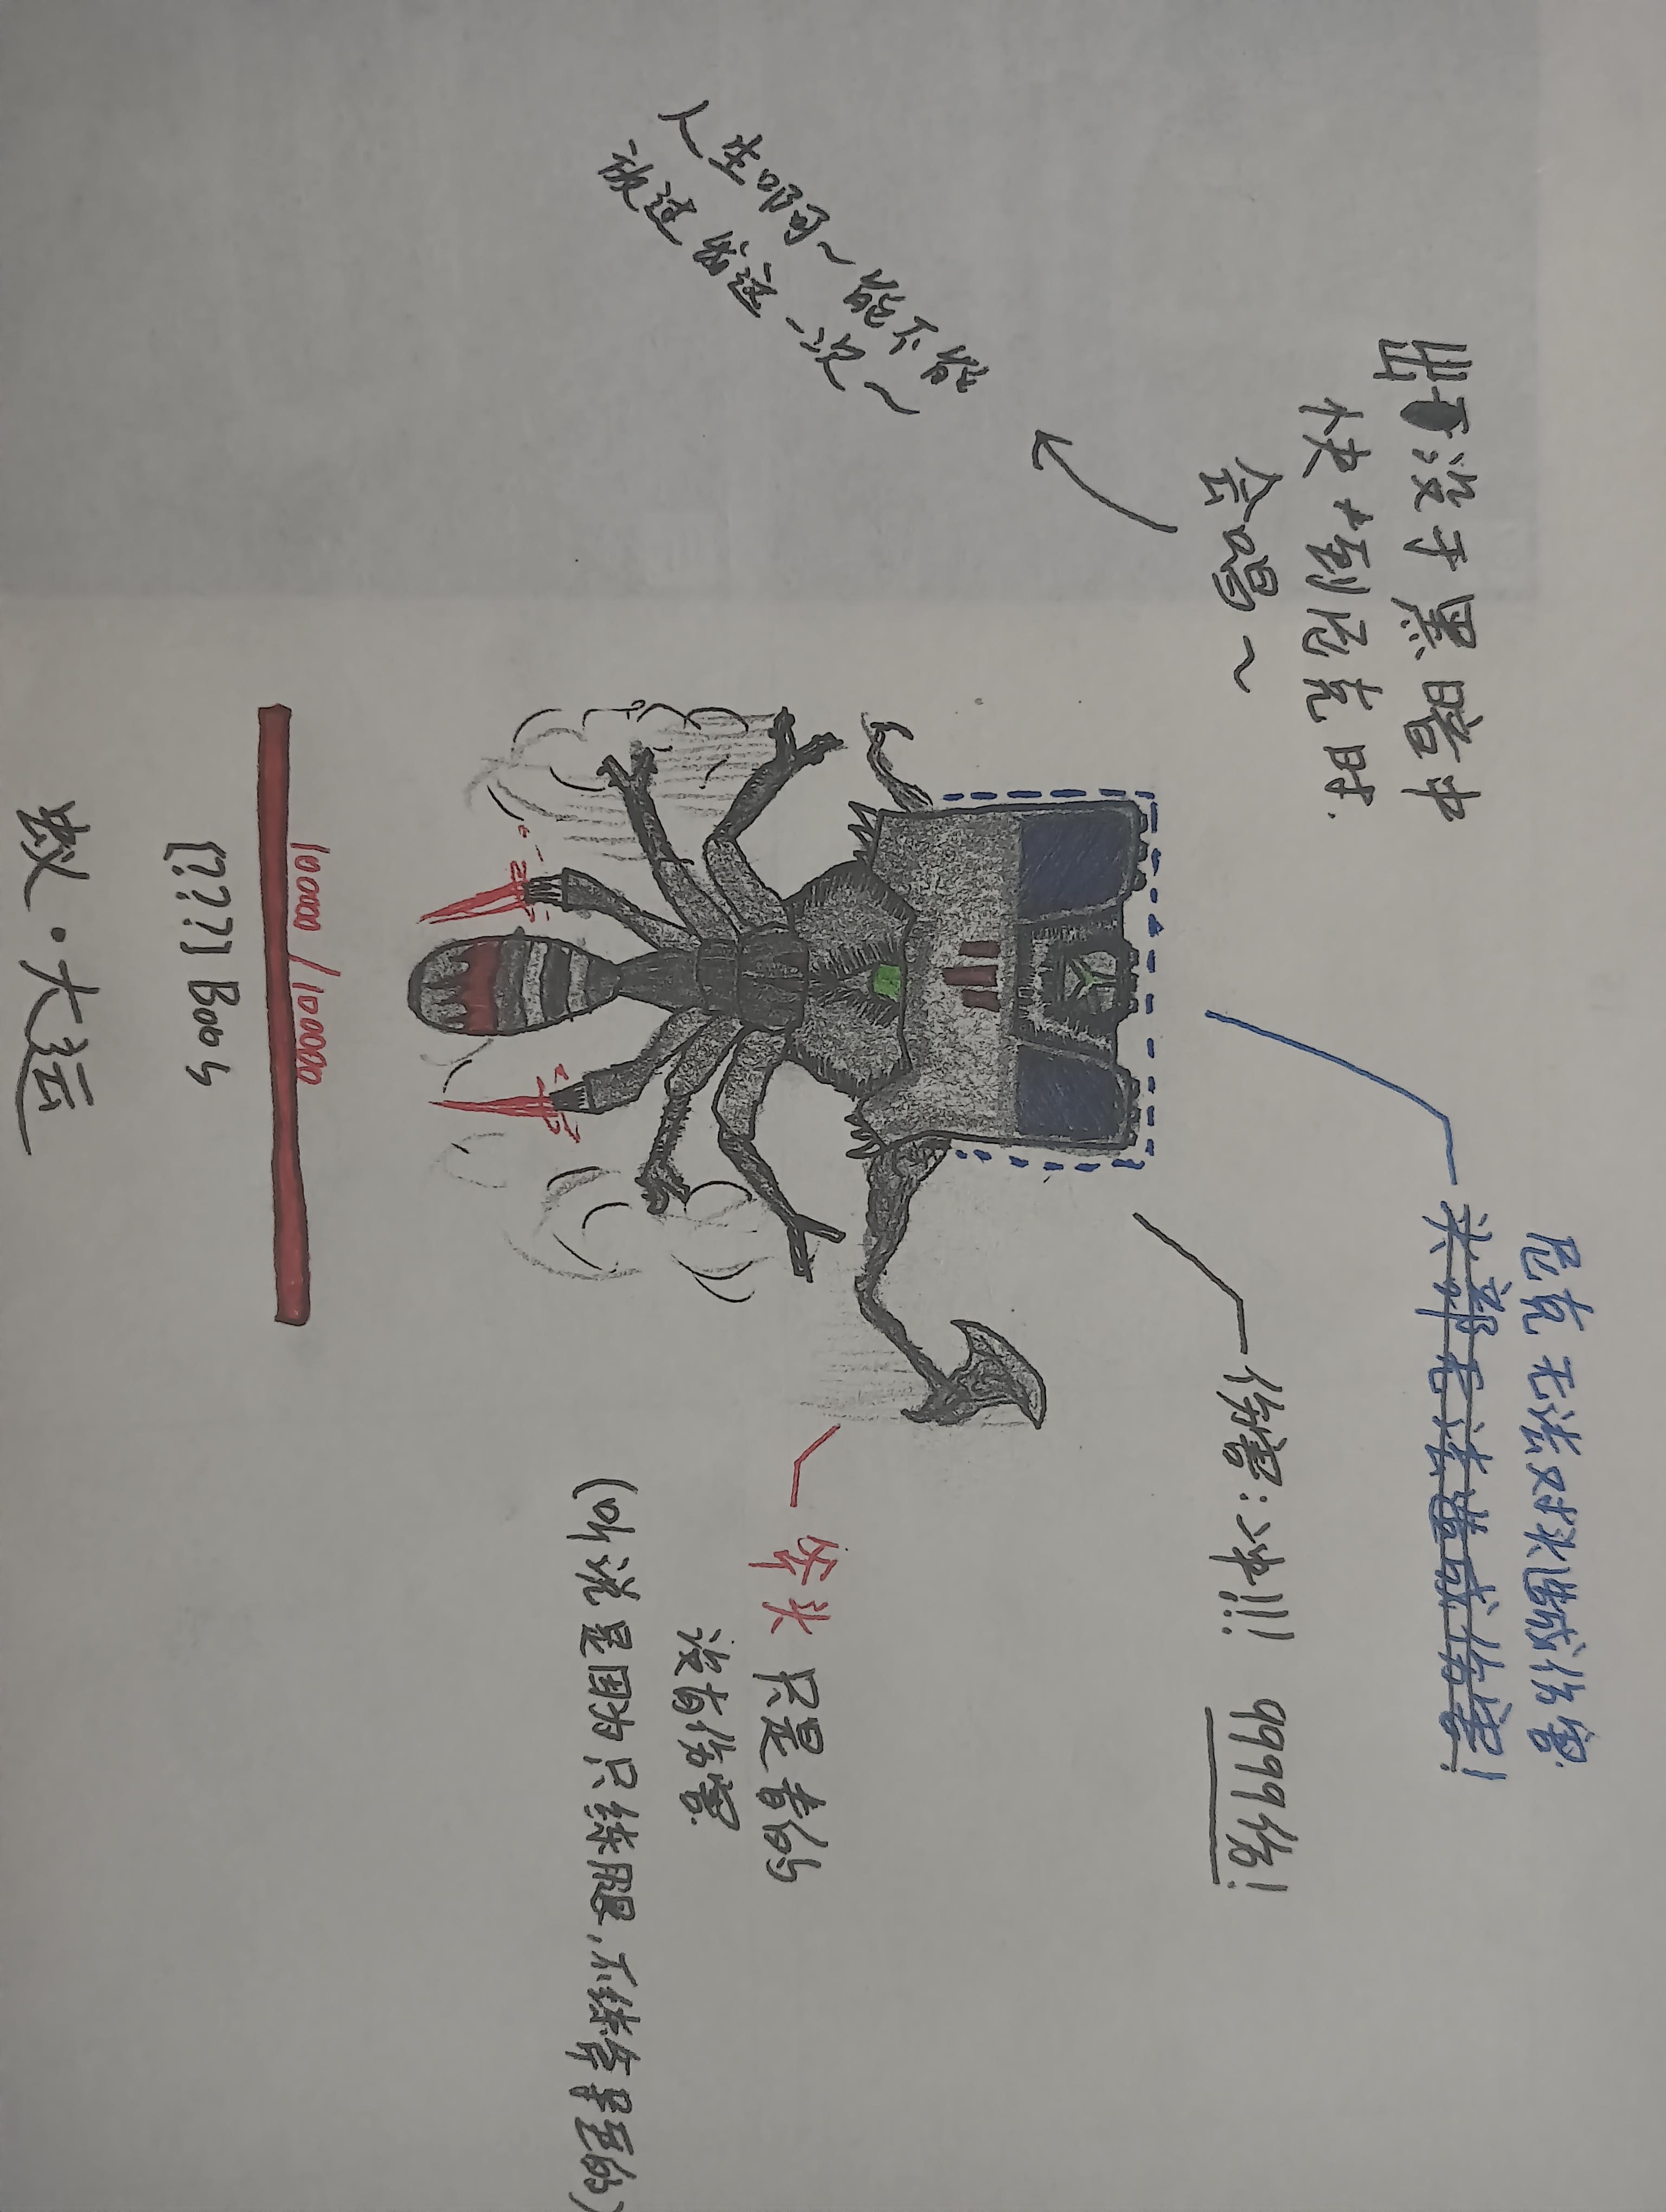 尼克无法对头造成伤害
头部无法造成伤害!
出没于黑暗中
快撞到尼克时.
会唱~
人生啊~能不能
放过我这一次~
伤害:冲!!! 9999伤!
拳头 只是看的
没有伤害
(听说是因为只练腿,不练拳导至的)
100000 /100000
[???]Boos
蚁·大运